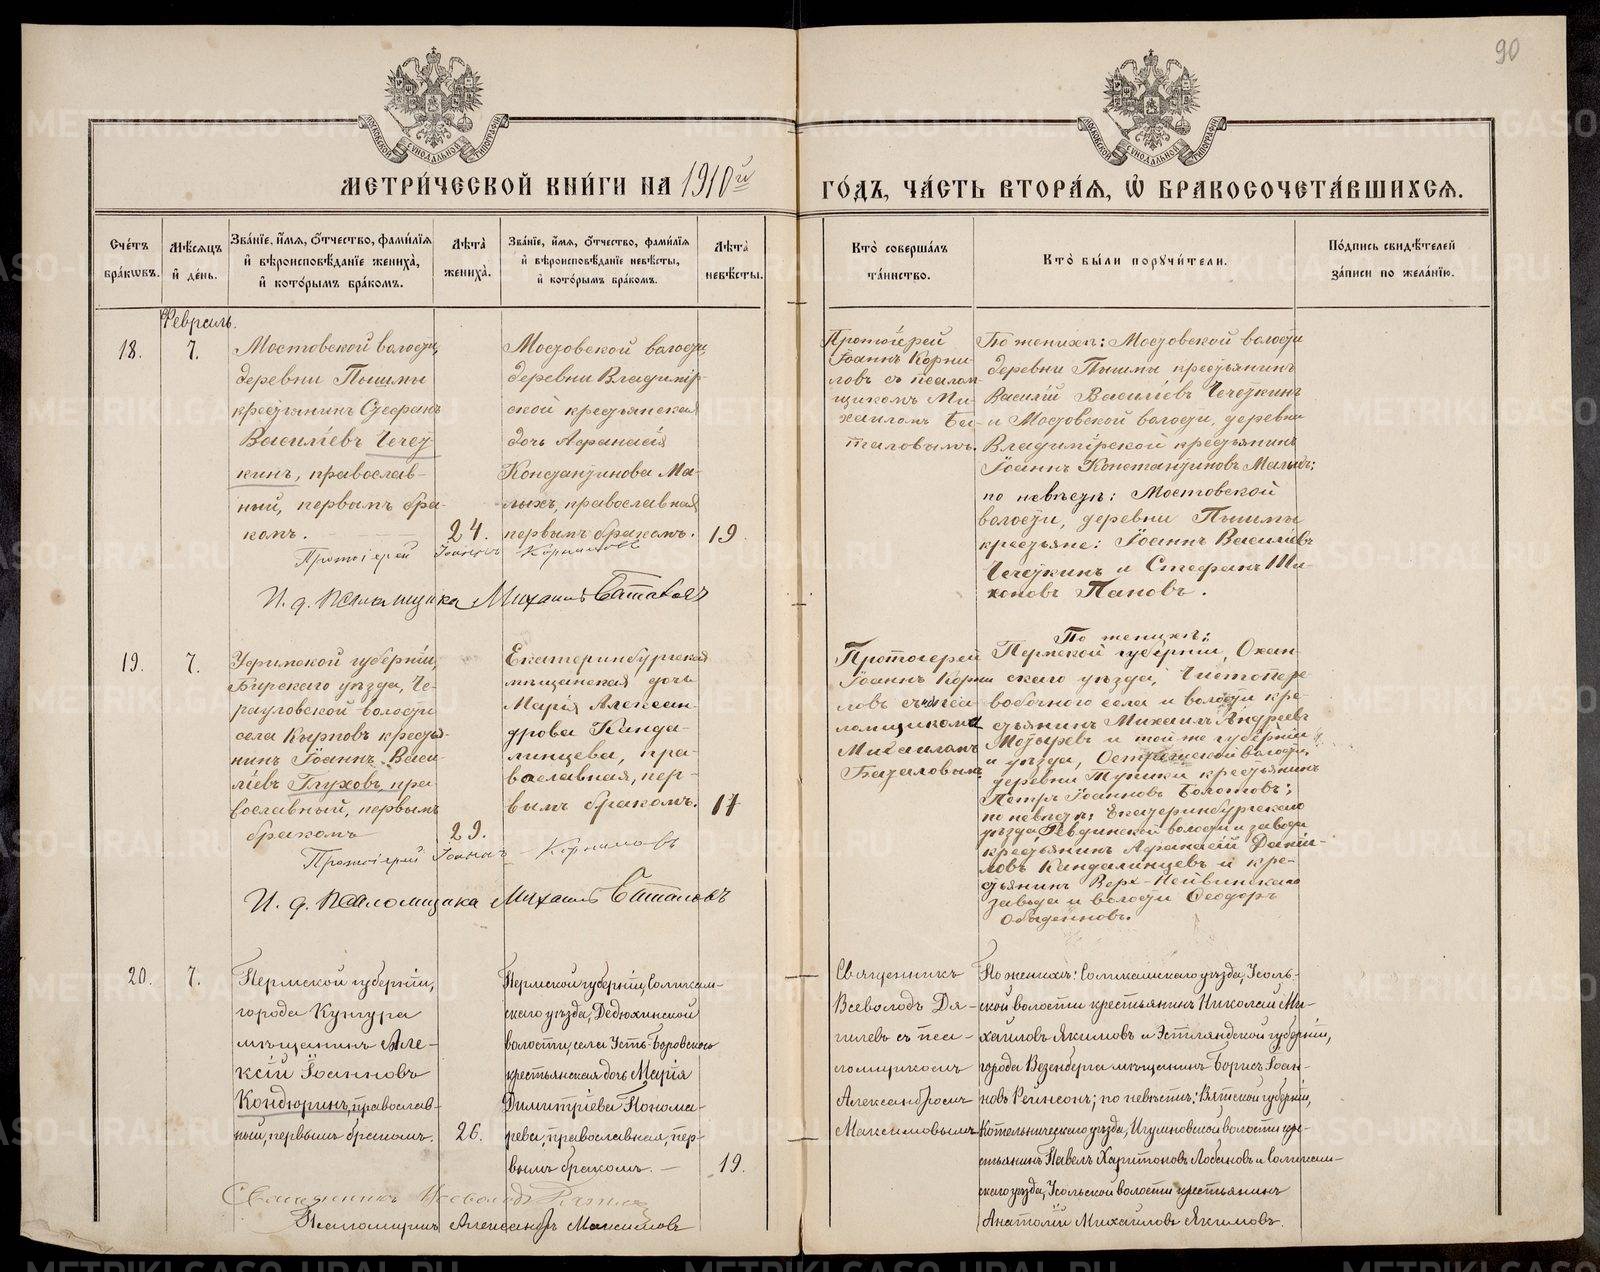 90
МЕТРИ́ЧЕСКОЙ КНИ́ГИ НА 1910й ГО́ДЪ, ЧА́СТЬ ВТОРА́Я, Ѡ БРАКОСОЧЕТА́ВШИХСЯ.
Сче́тъ бра́кѡвъ.
Мѣ́сяцъ и҆ де́нь.
Зва́нїе, и҆́мя, ѻ҆́тчество, фами́лїя
и҆ вѣроисповѣ́данїе жениха̀,
и҆ кото́рымъ бра́комъ.
Лѣ́та̀ жениха̀.
Зва́нїе, и҆́мя, ѻ҆́тчество, фами́лїя
и҆ вѣроисповѣ́данїе невѣ́сты,
и҆ кото́рымъ бра́комъ.
Лѣ́та̀ невѣ́сты.
Кто̀ соверша́лъ та́инство.
Кто̀ бы́ли порꙋчи́тели.
По́дпись свидѣ́телей за́писи по жела́нїю.
Февраль.
18.
7.
Мостовской волости,
деревни Пышмы
крестьянинъ Стефанъ
Васильевъ Чечет
кинъ, православ-
ный, первымъ бра-
комъ.
24.
Мостовской волости,
деревни Владимір-
ской крестьянская
дочь Афанасія
Константинова Ма-
лыхъ, православная
первымъ бракомъ.
19
Протоіерей
Іоаннъ Корни-
ловъ съ псалом-
щикомъ Ми-
хаиломъ Ба-
таловымъ.
По женихѣ: Мостовской волости
деревни Пышмы крестьянинъ
Василій Васильевъ Чечеткинъ
и Мостовской волости, деревни
Владимірской крестьянинъ
Іоаннъ Константиновъ Малыхъ;
по невѣстѣ: Мостовской
волости, деревни Пышмы
крестьяне: Іоаннъ Васильевъ
Чечеткинъ и Стефанъ
Пановъ.
Протоіерей Іоаннъ Корниловъ
И. д. Псаломщика Михаилъ Баталовъ
19.
7.
Уфимской губерніи,
Бирскаго уѣзда, Че-
рауловской волости
села крестья-
нинъ Іоаннъ Васи-
льевъ Глуховъ, пра
вославный, первымъ
бракомъ
29.
Екатеринбургская
мѣщанская дочь
Марія Алексан-
дрова Канда-
линцева, пра-
вославная, пер-
вымъ бракомъ.
17
Протоіерей
Іоаннъ Корни
ловъ съ пса
ломщикомъ
Михаиломъ
Баталовымъ
По женихѣ:
Пермской губерніи, Охан-
скаго уѣзда, Чистопере-
волочнаго села и волости кре-
стьянинъ Михаилъ Андреевъ
и той же губерніи
и уѣзда, волости,
деревни крестьянинъ
Петръ Іоанновъ Болотовъ;
по невѣстѣ: Екатеринбургскаго
уѣзда Ревдинской волости и завода
крестьянинъ Афанасій Даніи-
ловъ Кандалинцевъ и кре-
стьянинъ Верх-Нейвинскаго
завода и волости Ѳеодоръ
Обыденновъ.
Протоіерей Іоаннъ Корниловъ
И. д. Псаломщика Михаилъ Баталовъ
20.
7.
Пермской губерніи,
города Кунгура
мѣщанинъ Але-
ксій Іоанновъ
Кондюринъ, православ-
ный, первымъ бракомъ.
26.
Пермской губерніи, Соликам-
скаго уѣзда, Дедюхинской
волости, села Усть-Боровского
крестьянская дочь Марія
Димитріева Понома-
рева, православная, пер-
вымъ бракомъ. —
19.
Священникъ
Всеволодъ Дя-
гилевъ съ пса-
ломщикомъ
Александромъ
Максимовымъ
По женихѣ: Соликамскаго уѣзда, Усоль-
ской волости крестьянинъ Николай Ми-
хайловъ Якимовъ и Эстляндской губерніи,
города Везенберга мѣщанинъ Борисъ Іоан-
новъ Рейнсонъ; по невѣстѣ: Вятской губерніи,
Котельническаго уѣзда, Игумновской волости кре-
стьянинъ Павелъ Харитоновъ Лобановъ и Соликам-
скаго уѣзда, Усольской волости крестьянинъ
Анатолій Михайловъ Якимовъ.
Священникъ Всеволодъ Дягилевъ
Псаломщикъ Александръ Максимовъ
METRIKI.GASO-URAL.RU